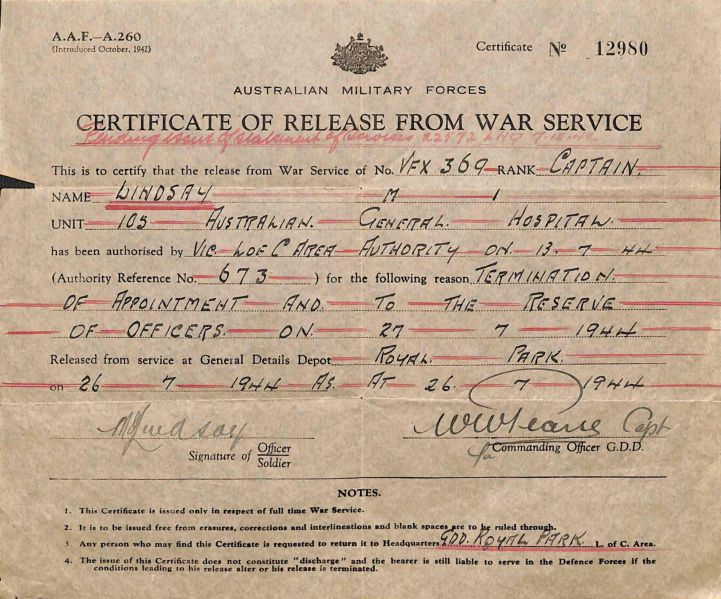 A.A.F.—A.260
(Introduced October, 1942)
Certificate No 12980
AUSTRALIAN MILITARY FORCES
CERTIFICATE OF RELEASE FROM WAR SERVICE
Pending issue of statement of services
This is to certify that the release from War Service of No. VFX 369 RANK CAPTAIN.
NAME LINDSAY M I
UNIT 105 AUSTRALIAN. GENERAL. HOSPITAL.
has been authorised by VIC. L OF C AREA AUTHORITY ON 13 - 7 44
(Authority Reference No. 673 ) for the following reason TERMINATION.
OF APPOINTMENT AND. TO THE RESERVE
OF OFFICERS. ON. 27 7 1944
Released from service at General Details Depot ROYAL. PARK.
on 26 7 1944 AS. AT 26. 7 1944
M Lindsay
Capt
Signature of Officer
Soldier
Commanding Officer G.D.D.
NOTES.
1. This Certificate is issued only in respect of full time War Service.
2. It is to be issued free from erasures, corrections and interlineations and blank spaces are to be ruled through.
3 Any person who may find this Certificate is requested to return it to Headquarters G.D.D. ROYAL PARK L. of C. Area.
4. The issue of this Certificate does not constitute "discharge" and the bearer is still liable to serve in the Defence Forces if the
conditions leading to his release alter or his release is terminated.